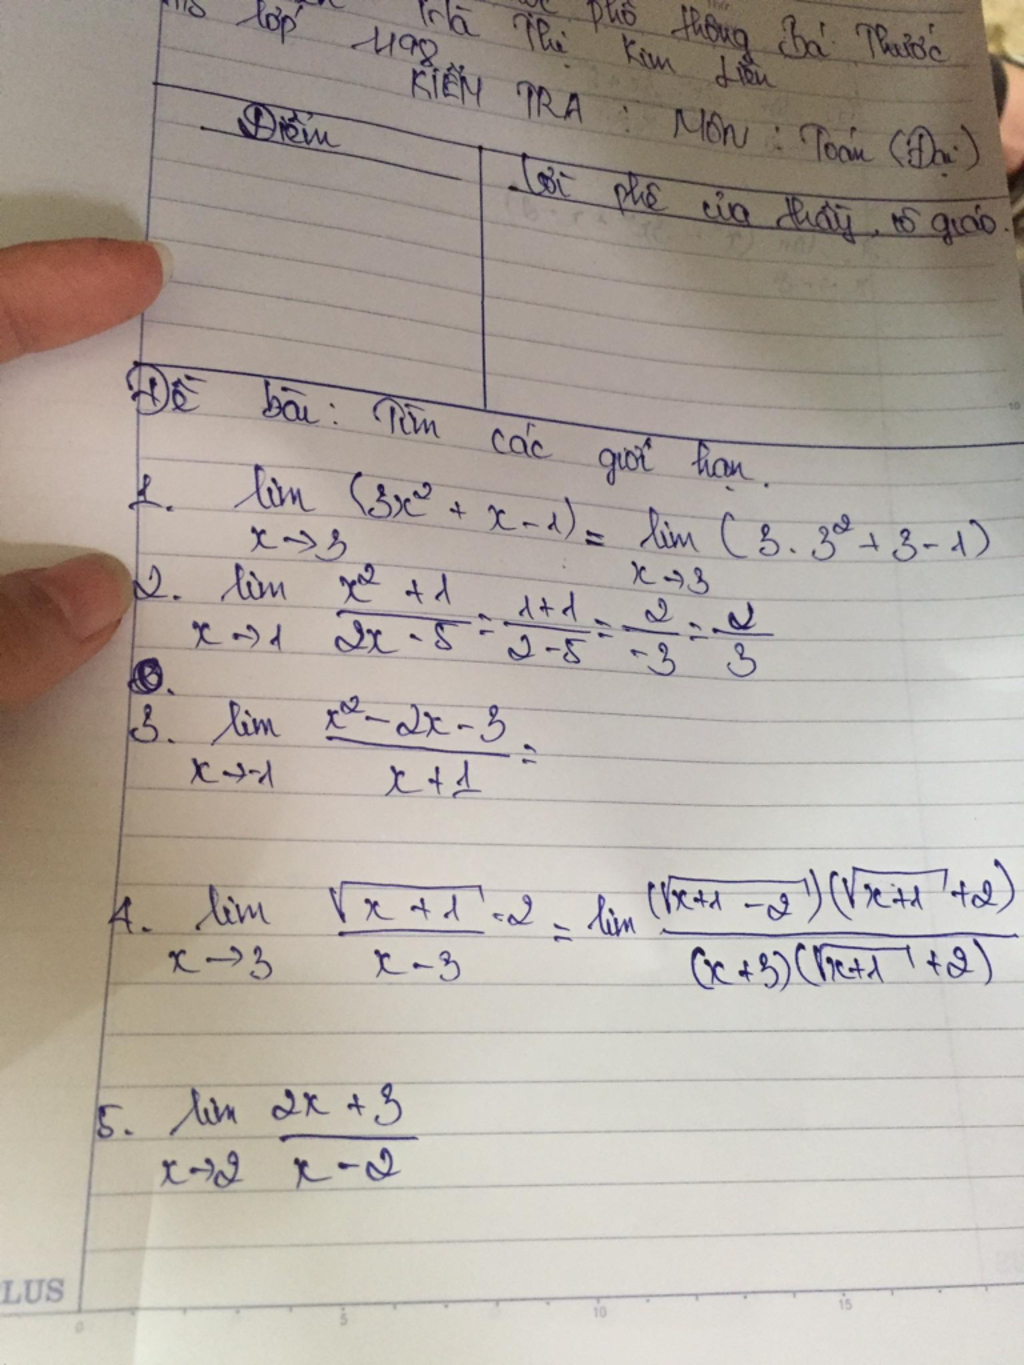 phổ thông Bá Thước
lớp 11A8 Hà Thị Kim Liên
KIỂM TRA : MÔN : Toán (Đại)
Điểm
Lời phê của thầy, cô giáo.
Đề bài: Tìm các giới hạn.
1. lim (3x² + x - 1) = lim (3.3² + 3 - 1)
x→3 x→3
2. lim x² + 1 / 2x - 5 = 1+1 / 2-5 = 2 / -3 = 2 / 3
x→1
3. lim x² - 2x - 3 / x + 1 =
x→-1
4. lim √x+1 - 2 / x - 3 = lim (√x+1 - 2)(√x+1 + 2) / (x+3)(√x+1 + 2)
x→3
5. lim 2x + 3 / x - 2
x→2
PLUS
0 5 10 15
10